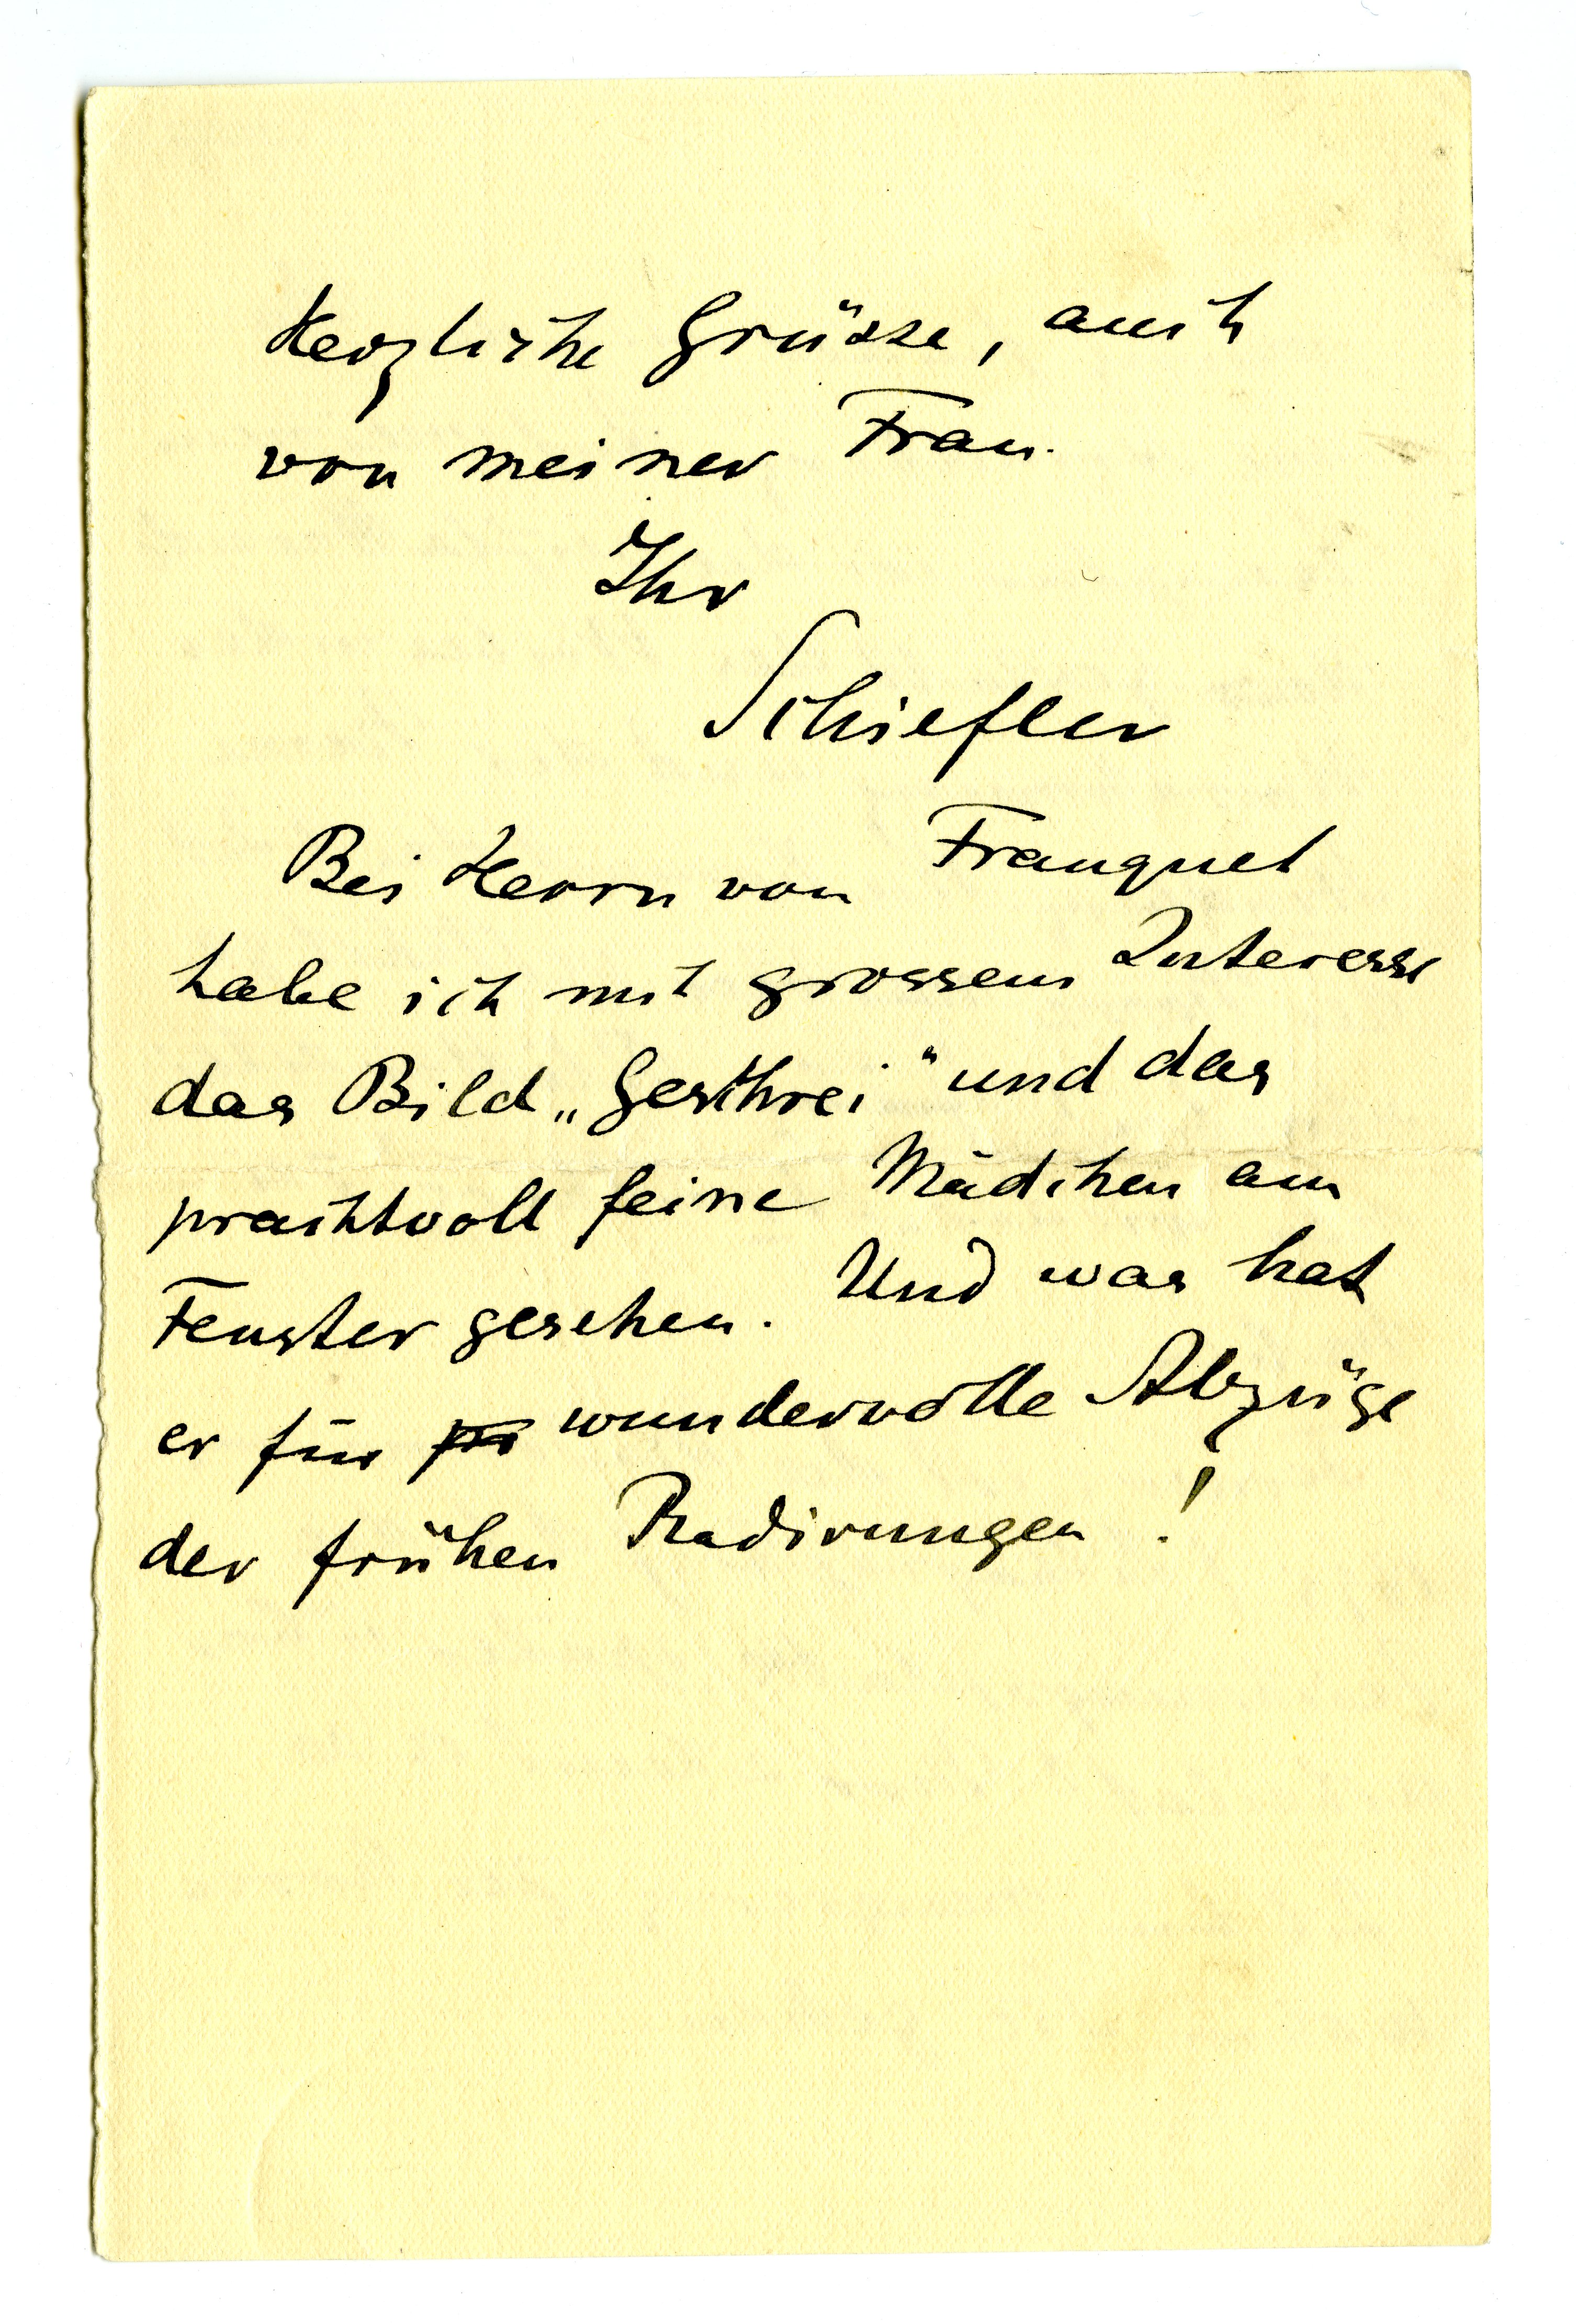 Herzliche Grüsse, auch
von meiner Frau.
Ihr
Schiefler
Bei Herrn von Franquet
habe ich mit grossem Interesse
das Bild „Geschrei“ und das
prachtvoll feine Mädchen am
Fenster gesehen. Und was hat
er für wundervolle Abzüge
der frühen Radirungen!